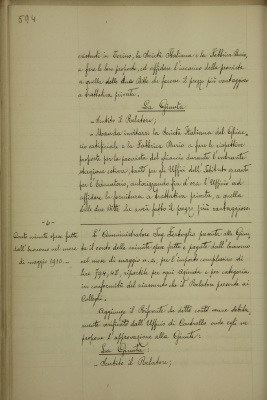 594
esistenti in Torino, la Società Italiana e la Fabbrica Durio,
a fare le loro proposte, ed affidare l'incarico della provvista
a quella delle due Ditte che faccia il prezzo più vantaggioso
a trattativa privata.
La Giunta
- Sentito il Relatore;
- Manda invitarsi la Società Italiana del
artificiale e la Fabbrica Durio a fare le rispettive
proposte per la provvista del ghiaccio durante l'entrante
stagione estiva, tanto per gli Uffici del quanto
per il Laboratorio, autorizzando fin d'ora l'Ufficio ad
affidare la fornitura, a trattativa privata, a quella
delle due Ditte che avrà fatto il prezzo più vantaggioso.
-6-
Conto minute spese fatte
dall'Economo nel mese
di maggio 1910. -
L'Amministratore Ing. presenta alla Giunta
il conto delle minute spese fatte e pagate dall'Economo
nel mese di maggio u.s., per l'importo complessivo di
lire 794,42, ripartite per ogni Azienda e per categoria
in conformità del riassunto che il Relatore presenta ai
Colleghi.
Aggiunge il Riferente che detto conto venne debitamente
verificato dall'Ufficio di Controllo onde egli ne
propone l'approvazione alla Giunta.
La Giunta:
- Sentito il Relatore;